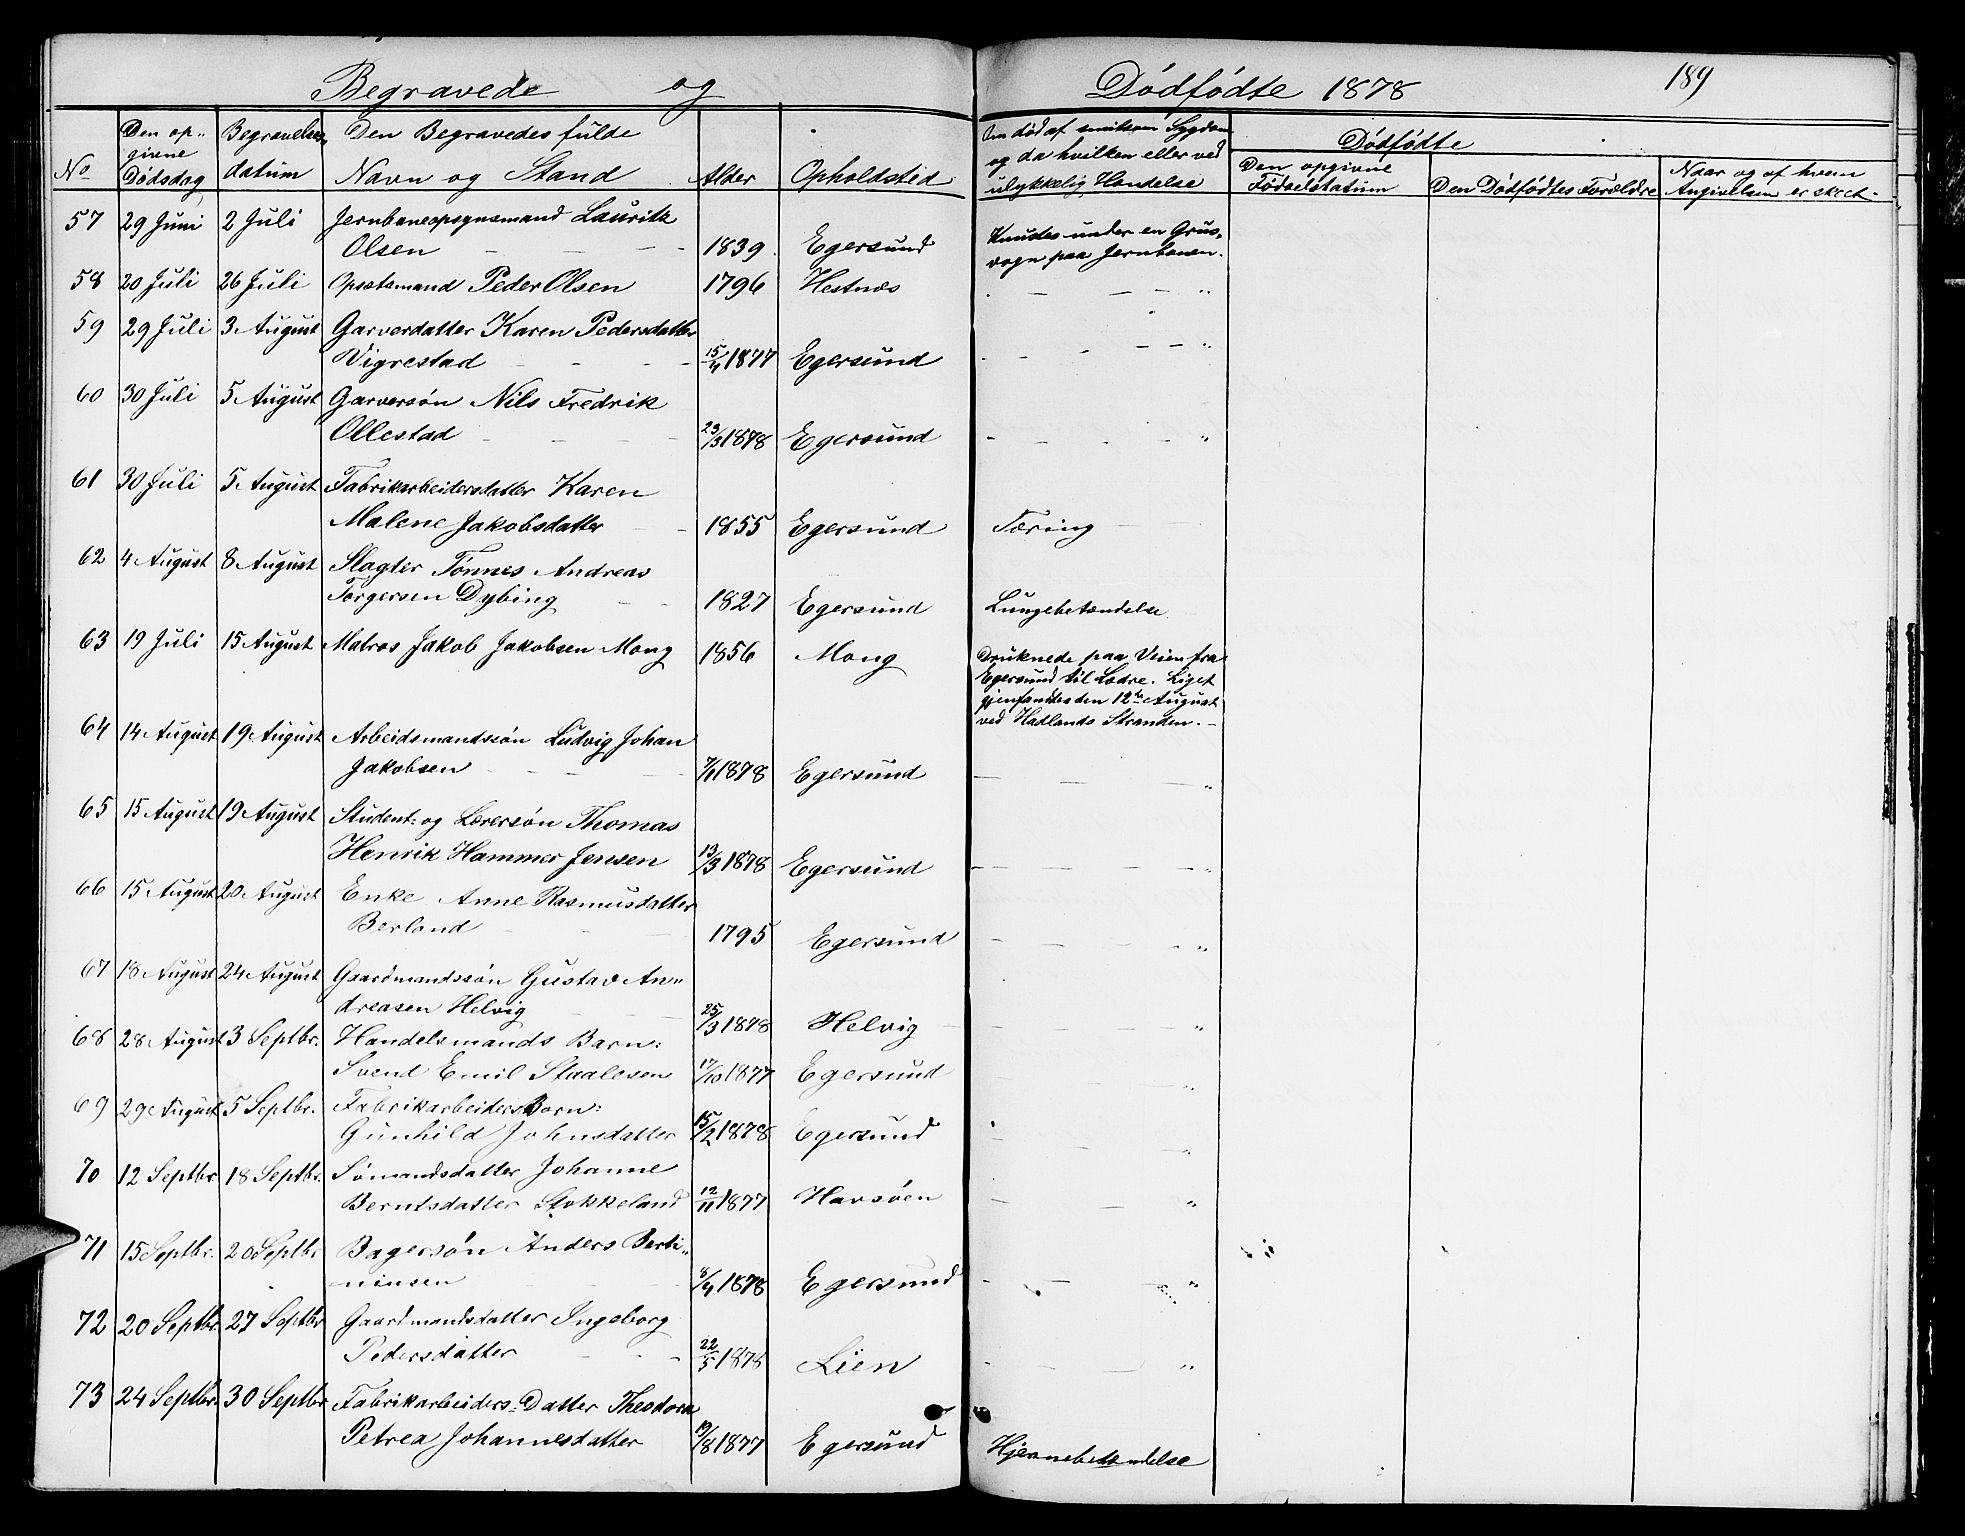 Begravede og Dødfødte 1878 189
No Den op- givne Dødsdag Begravelses- datum Den Begravedes fulde Navn og Stand Alder Opholdsted Om død af smitsom Sygdom og da hvilken eller ved ulykkelig Hændelse Dødfødte Den opgivne Fødselsdatum Den Dødfødtes Forældre Naar og af hvem Angivelsen er skeet.
57 29 Juni 2 Juli Jernbaneopsynsmand Lauritz
Olsen 1839. Egersund Knustes under en Grus-
vogn paa Jernbanen.
58 20 Juli 26 Juli Opsatsmand Peder Olsen 1796 Hestnæs - - - "
59 29 Juli 3 August Garverdatter Karen Pedersdatter
Vigrestad - - - 15/4 1877 Egersund - - - "
60 30 Juli 5 August Garversøn Nils Fredrik
Ollestad - - - 23/3 1878 Egersund - - - "
61 30 Juli 5 August Fabrikarbeidersdatter Karen
Malene Jakobsdatter - 1855 Egersund Tæring
62 4 August 8 August Slagter Tønnes Andreas
Torgersen Dybing - - 1827 Egersund Lungebetændelse
63 19 Juli 15 August Matros Jakob Jakobsen Mong 1856 Mong Druknede paa Veien fra
Egersund til Lædre. Liget
gjenfandtes den 12te August
ved Hadlands Stranden. -
64 14 August 19 August Arbeidsmandssøn Ludvig Johan
Jakobsen - - - 1878 Egersund - - - "
65 15 August 19 August Student- og Lærersøn Thomas
Henrik Hammer Jensen 13/3 1878 Egersund - - - "
66 15 August 20 August Enke Anne Rasmusdatter
Berland - - - 1795 Egersund - - - "
67 18 August 24 August Gaardmandssøn Gustav An-
dreasen Helvig - - 25/3 1878 Helvig - - - "
68 28 August 3 Septbr. Handelsmands Barn:
Svend Emil Staalesen 17/10 1877 Egersund - - - "
69 29 August 5 Septbr. Fabrikarbeiders Barn:
Gunhild Johnsdatter 15/2 1878 Egersund - - - "
70 12 Septbr. 18 Septbr. Sømandsdatter Johanne
Berntsdatter Stokkeland 12/11 1877 Havsøen - - - "
71 15 Septbr. 20 Septbr. Bagersøn Anders Berti-
niusen - - - 8/4 1878 Egersund - - - "
72 20 Septbr. 27 Septbr Gaardmandsdatter Ingeborg
Pedersdatter - - - 22/5 1878 Lien - - - "
73 24 Septbr. 30 Septbr Fabrikarbeiders-Datter Theodora
Petrea Johannesdatter 19/8 1877 Egersund Hjernebetændelse